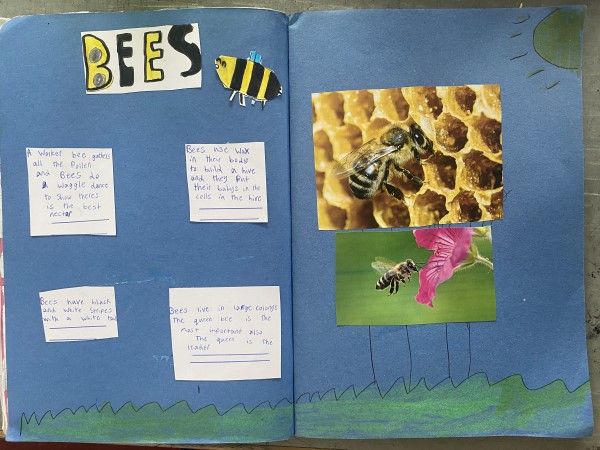 BEES
A worker bee gathers
all the Pollen
and Bees do
a waggle dance
to show theres
is the best
nectar
Bees use wax
in their body
to build a hive
and they Put
their babys in the
cells in the hive
Bees have black
and white stripes
with a white tail
Bees live in large colonys
The queen bee is the
most important also
The queen is the
leader